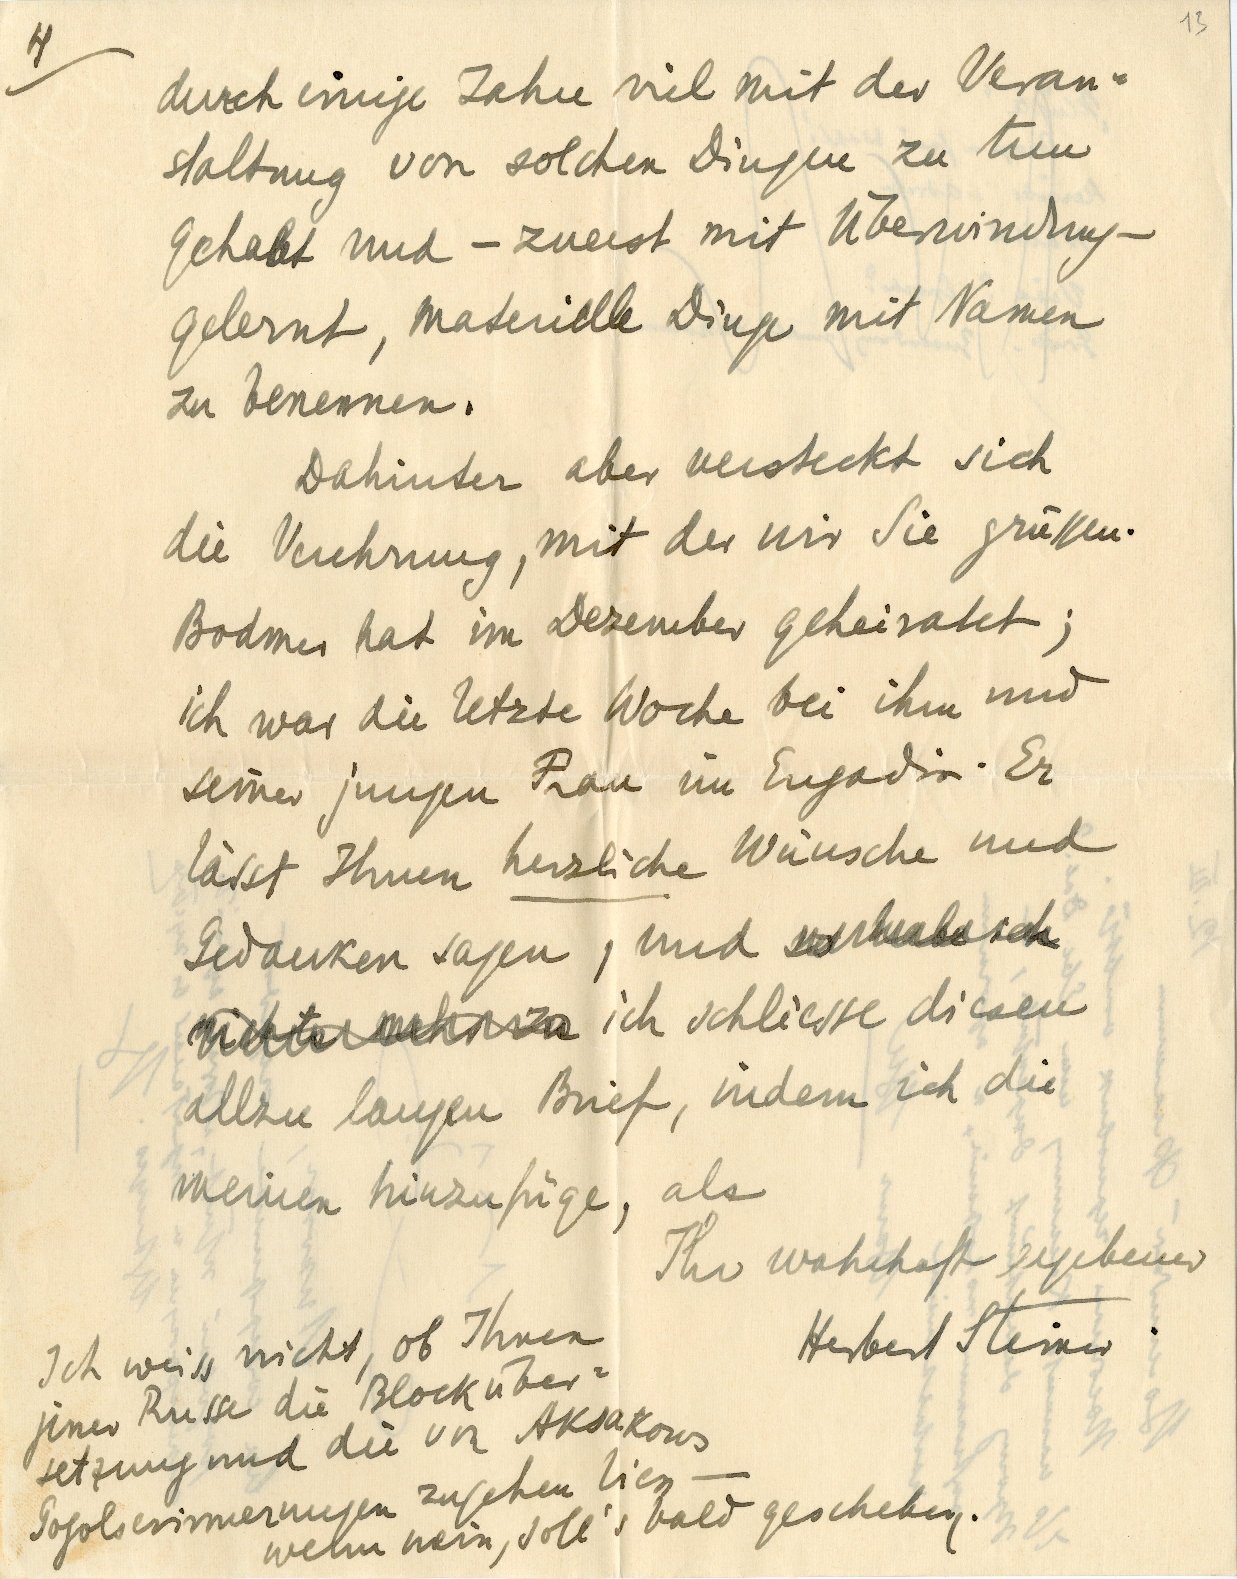 4
13
durch einige Jahre viel mit der Veran=
staltung von solchen Dingen zu tun
gehabt und – zuerst mit Überwindung –
gelernt, materielle Dinge mit Namen
zu benennen.
Dahinter aber versteckt sich
die Verehrung, mit der wir Sie grüssen.
Bodmer hat im Dezember geheiratet;
ich war die letzte Woche bei ihm und
seiner jungen Frau im Engadin. Er
lässt Ihnen herzliche Wünsche und
Gedanken sagen, und
nichts mehr zu ich schliesse diesen
allzu langen Brief, indem ich die
meinen hinzufüge, als
Ihr wahrhaft ergebener
Herbert Steiner.
Ich weiss nicht, ob Ihnen
jener Russe die Blocküber=
setzung und die von Aksakows
Gogolerinnerungen zugehen liess –
wenn nein, soll's bald geschehen.